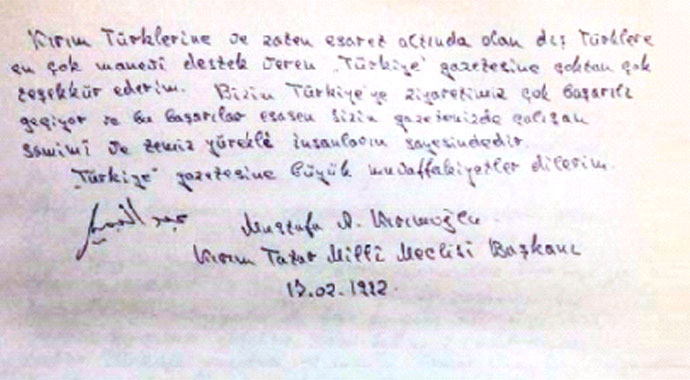 Kırım Türklerine ve zaten esaret altında olan dış Türklere
en çok manevi destek veren "Türkiye" gazetesine çoktan çok
teşekkür ederim. Bizim Türkiye'ye ziyaretimiz çok başarılı
geçiyor ve bu başarılar esasen sizin gazetenizde çalışan
samimî ve temiz yürekli insanların sayesindedir.
"Türkiye" gazetesine büyük muvaffakiyetler dilerim.
Mustafa A. Kırımoğlu
Kırım Tatar Millî Meclisi Başkanı
13.02.1992.